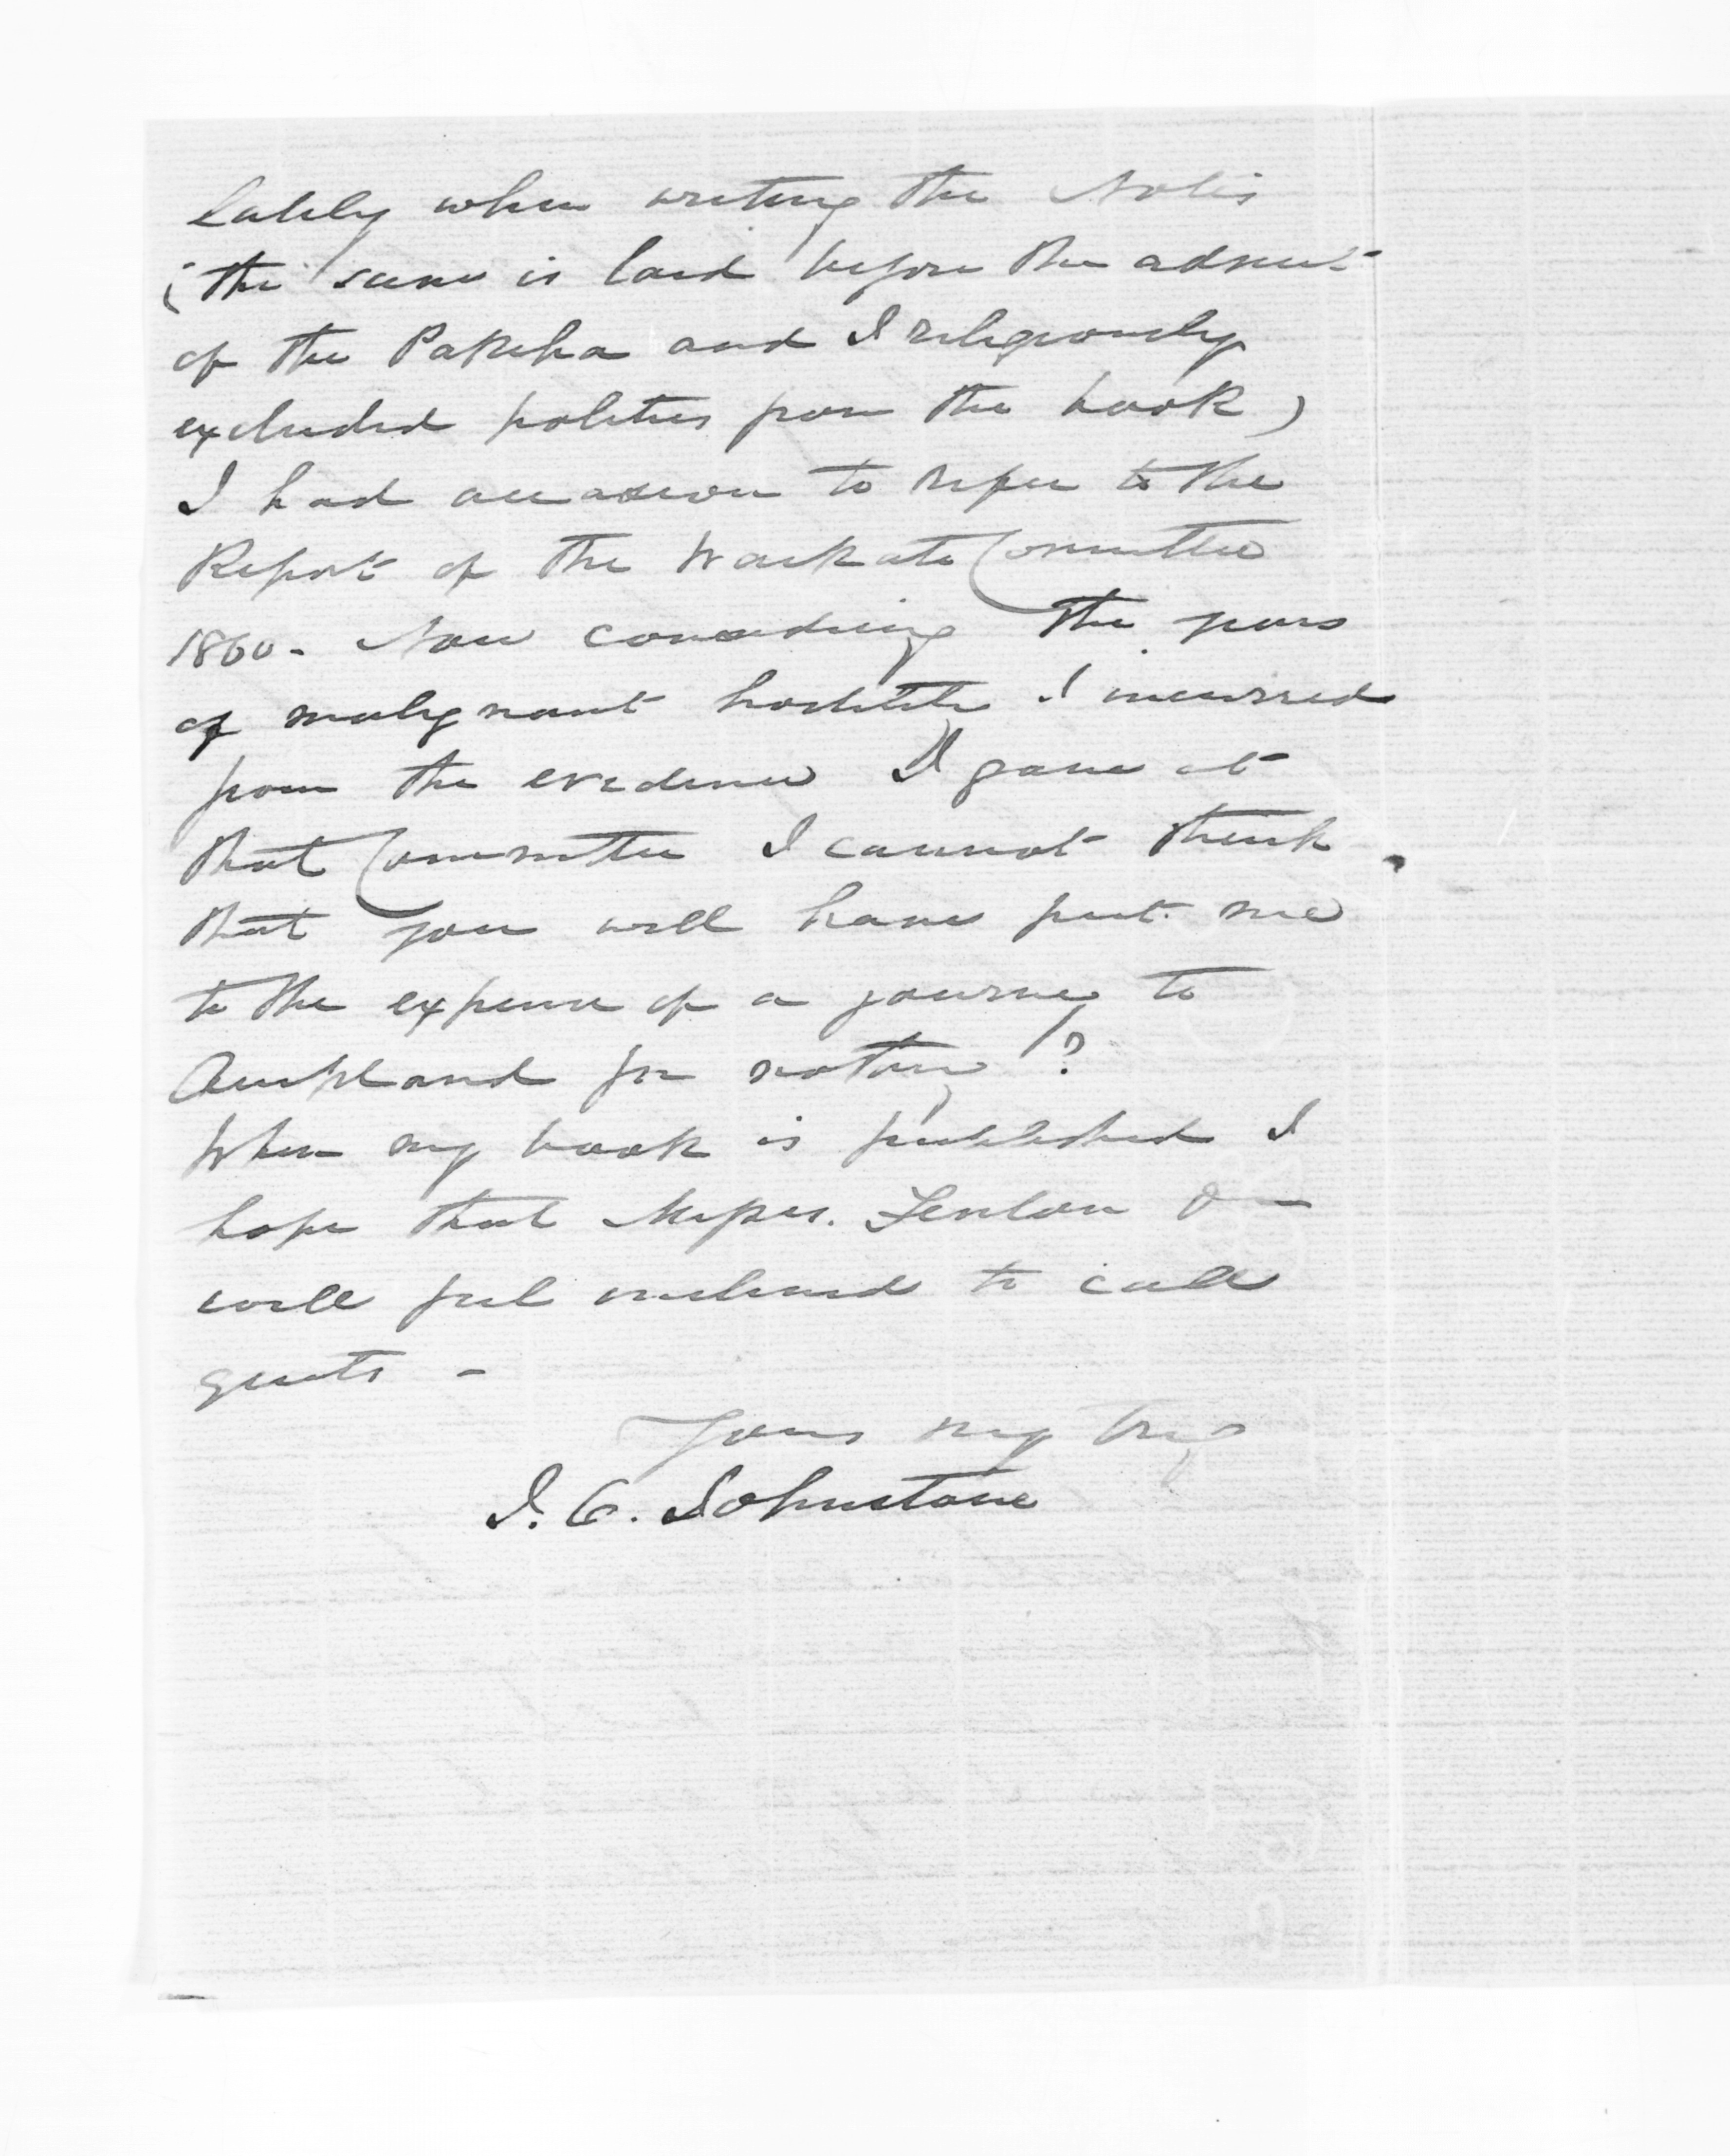 Lately when writing the Notes
(the scene is laid before the advent
of the Pakeha and I religiously
excluded politics from the book)
I had occasion to refer to the
Report of the Waikato Committee
1860 - Now considering the years
of malignant hostility I incurred
from the evidence I gave at
that Committee I cannot think
that you will have put me
to the expense of a journey to
Auckland for nothing?
When my book is published I
hope that Messrs. Fenton &
will feel inclined to call
quits -
Yours very try
J. C. Johnstone